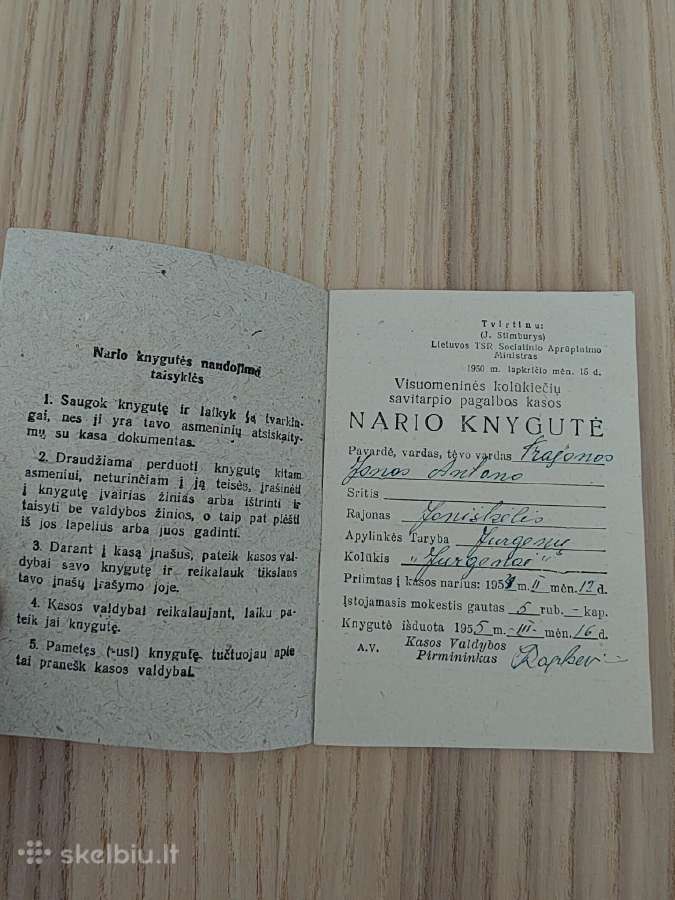 Nario knygutės naudojimo
taisyklės
1. Saugok knygutę ir laikyk ją tvarkin-
gai, nes ji yra tavo asmeninių atsiskaity-
mų su kasa dokumentas.
2. Draudžiama perduoti knygutę kitam
asmeniui, neturinčiam į ją teisės, įrašinėti
į knygutę įvairias žinias arba ištrinti ir
taisyti be valdybos žinios, o taip pat plėšti
iš jos lapelius arba juos gadinti.
3. Darant į kasą įnašus, pateik kasos val-
dybai savo knygutę ir reikalauk tikslaus
tavo įnašų įrašymo joje.
4. Kasos valdybai reikalaujant, laiku pa-
teik jai knygutę.
5. Pametęs (-usi) knygutę, tučtuojau apie
tai pranešk kasos valdybai.
Tvirtinu:
(J. Stimburys)
Lietuvos TSR Socialinio Aprūpinimo
Ministras
1950 m. lapkričio mėn. 15 d.
Visuomeninės kolūkiečių
savitarpio pagalbos kasos
NARIO KNYGUTĖ
Pavardė, vardas, tėvo vardas
Jonas Antano
Sritis
Rajonas Joniškėlis
Apylinkės Taryba Jurgėnų
Kolūkis "Jurgėnai"
Priimtas į kasos narius: 195 m. II mėn. 12 d.
Įstojamasis mokestis gautas 5 rub. - kap.
Knygutė išduota 1955 m. -III- mėn. 16 d.
A.V. Kasos Valdybos
Pirmininkas
skelbiu.lt